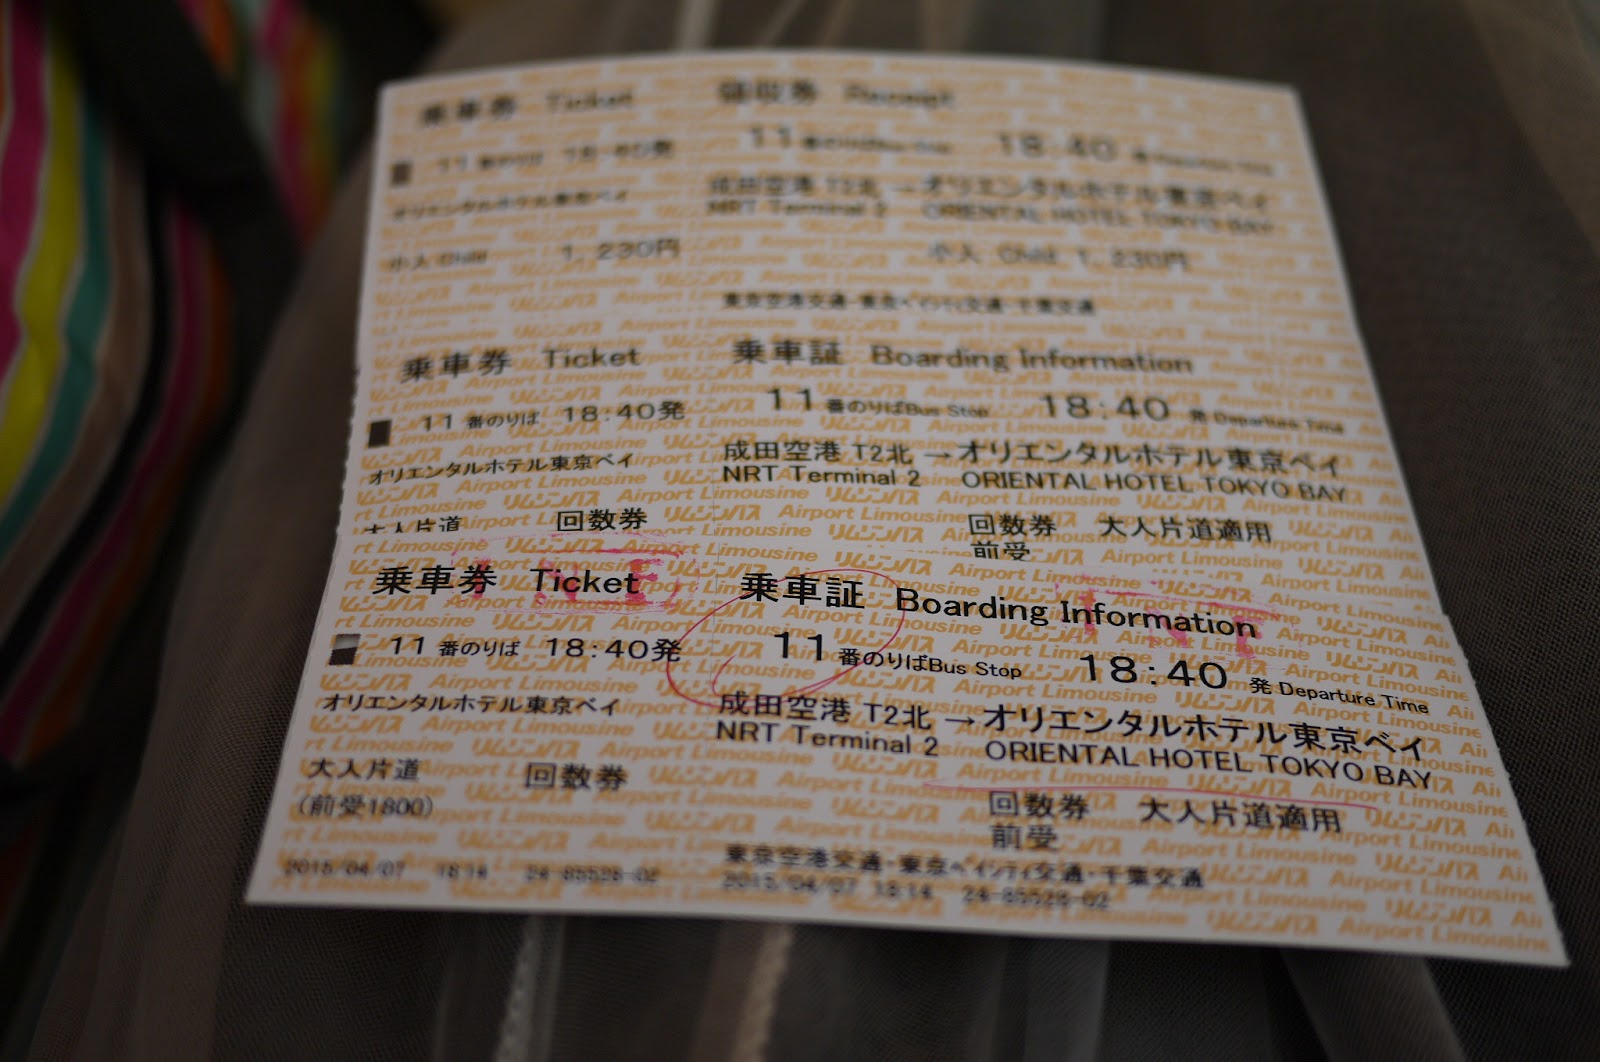 乗車券 Ticket 領収券 Receipt
11 番のりば 18:40発 11 番のりばBus Stop 18:40 発 Departure Time
オリエンタルホテル東京ベイ 成田空港 T2北 → オリエンタルホテル東京ベイ
NRT Terminal 2 ORIENTAL HOTEL TOKYO BAY
小人 Child 1,230円 小人 Child 1,230円
東京空港交通・東京ベイシティ交通・千葉交通
乗車券 Ticket 乗車証 Boarding Information
11 番のりば 18:40発 11 番のりばBus Stop 18:40 発 Departure Time
オリエンタルホテル東京ベイ 成田空港 T2北 → オリエンタルホテル東京ベイ
NRT Terminal 2 ORIENTAL HOTEL TOKYO BAY
大人片道 回数券 回数券 大人片道適用
前受
乗車券 Ticket 乗車証 Boarding Information
11 番のりば 18:40発 11 番のりばBus Stop 18:40 発 Departure Time
オリエンタルホテル東京ベイ 成田空港 T2北 → オリエンタルホテル東京ベイ
NRT Terminal 2 ORIENTAL HOTEL TOKYO BAY
大人片道 回数券 回数券 大人片道適用
(前受1800) 前受
東京空港交通・東京ベイシティ交通・千葉交通
2015/04/07 18:14 24-85528-02 2015/04/07 18:14 24-85528-02
リムジンバス Airport Limousine